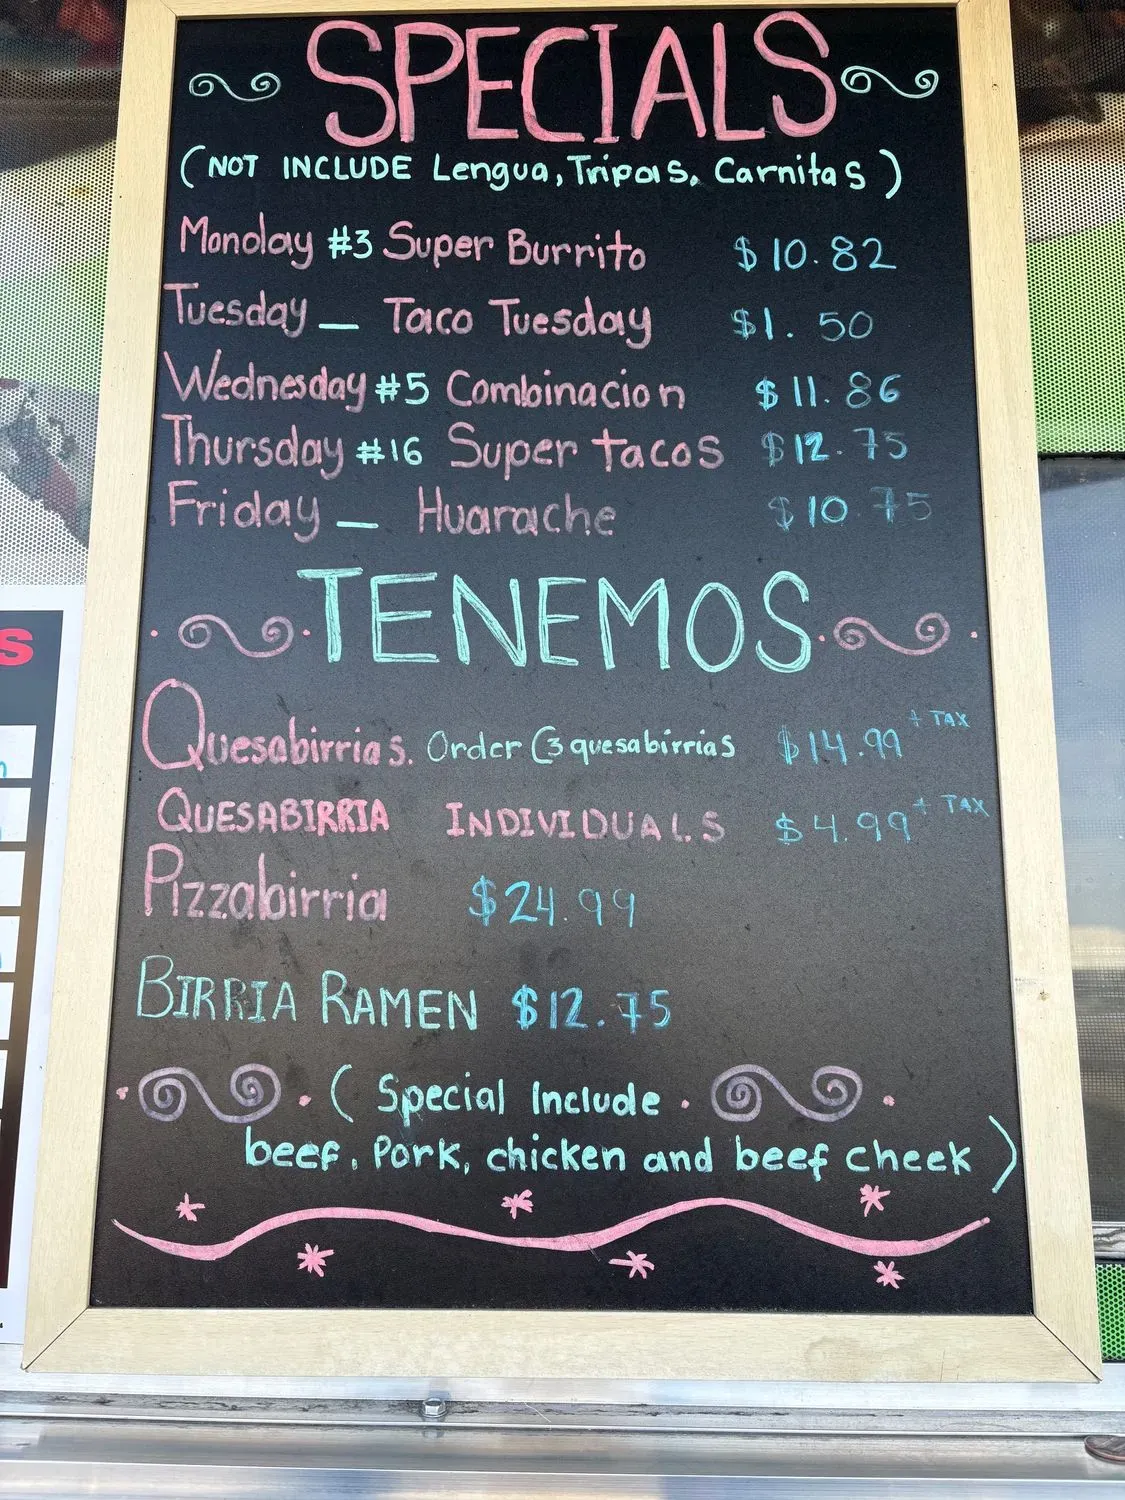 SPECIALS
(NOT INCLUDE Lengua, Tripas, Carnitas)
Monday #3 Super Burrito $10.82
Tuesday — Taco Tuesday $1.50
Wednesday #5 Combinacion $11.86
Thursday #16 Super tacos $12.75
Friday — Huarache $10.75
TENEMOS
Quesabirrias. Order (3 quesabirrias $14.99 + TAX
QUESABIRRIA INDIVIDUALS $4.99 + TAX
Pizzabirria $24.99
BIRRIA RAMEN $12.75
( Special Include
beef, Pork, chicken and beef cheek )
S